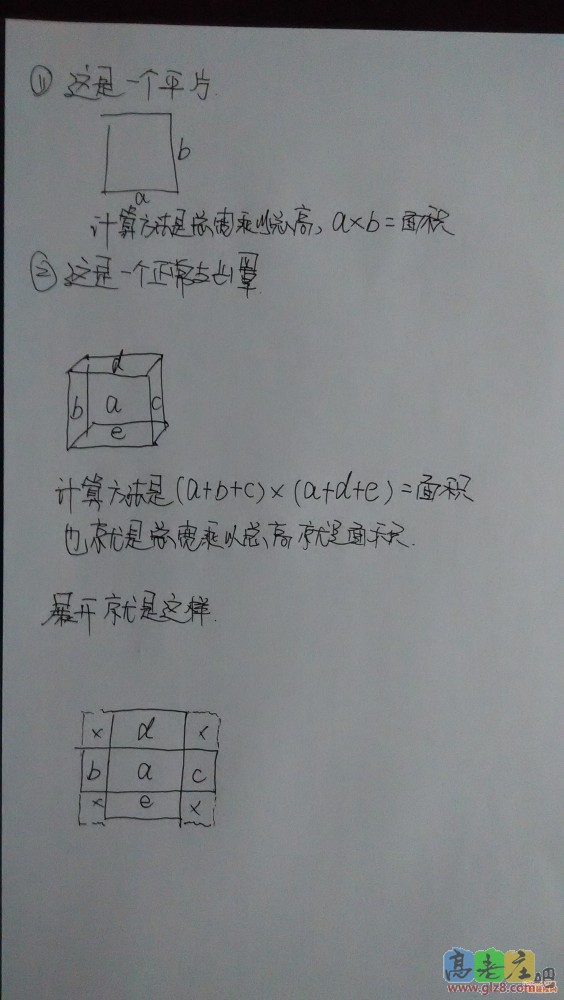 ① 这是一个平片.
b
a
计算方法是总宽乘以总高, a×b=面积
② 这是一个正常
d
b a c
e
计算方法是(a+b+c)×(a+d+e)=面积
也就是总宽乘以总高就是面积.
展开就是这样.
× d ×
b a c
× e ×
高老庄吧
www.glz8.com